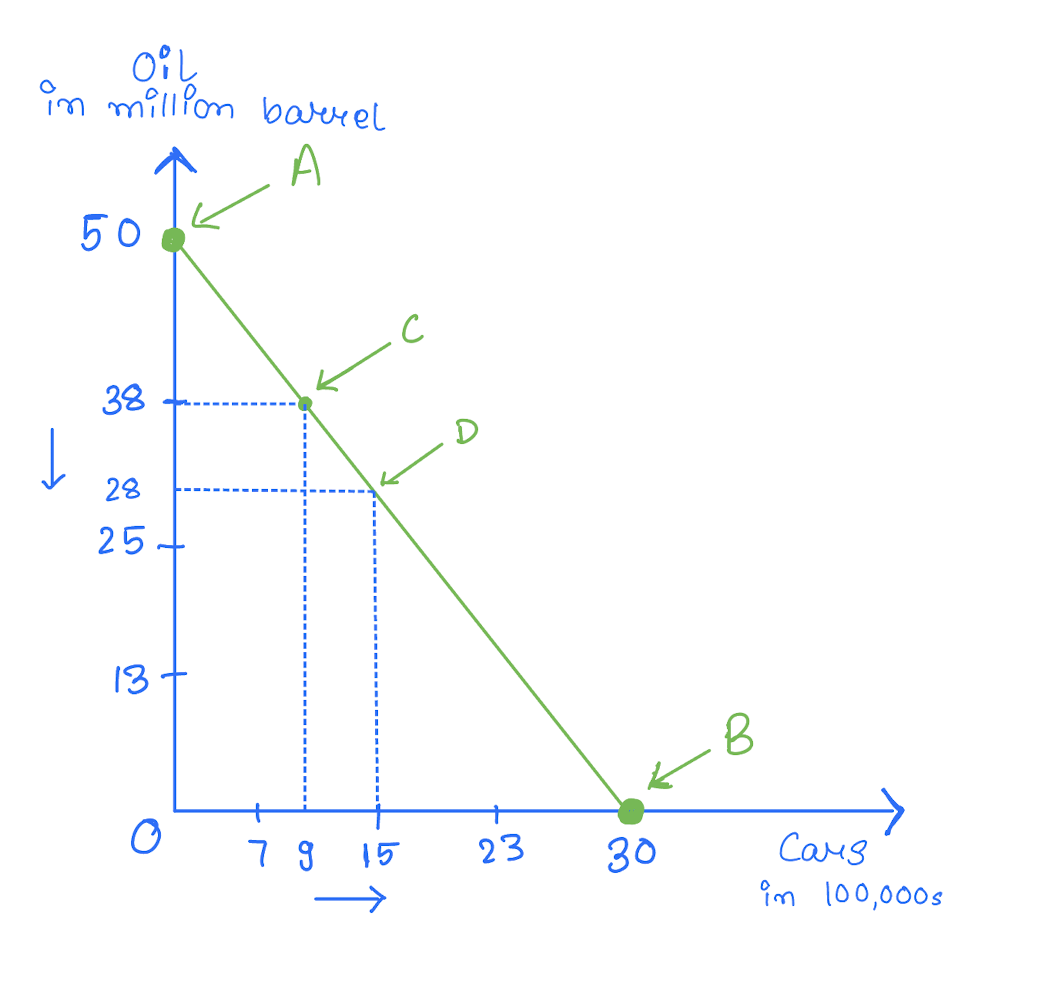 Oil
in million barrel
A
50
C
38
D
28
25
13
B
0
7
9
15
23
30
Cars
in 100,000s